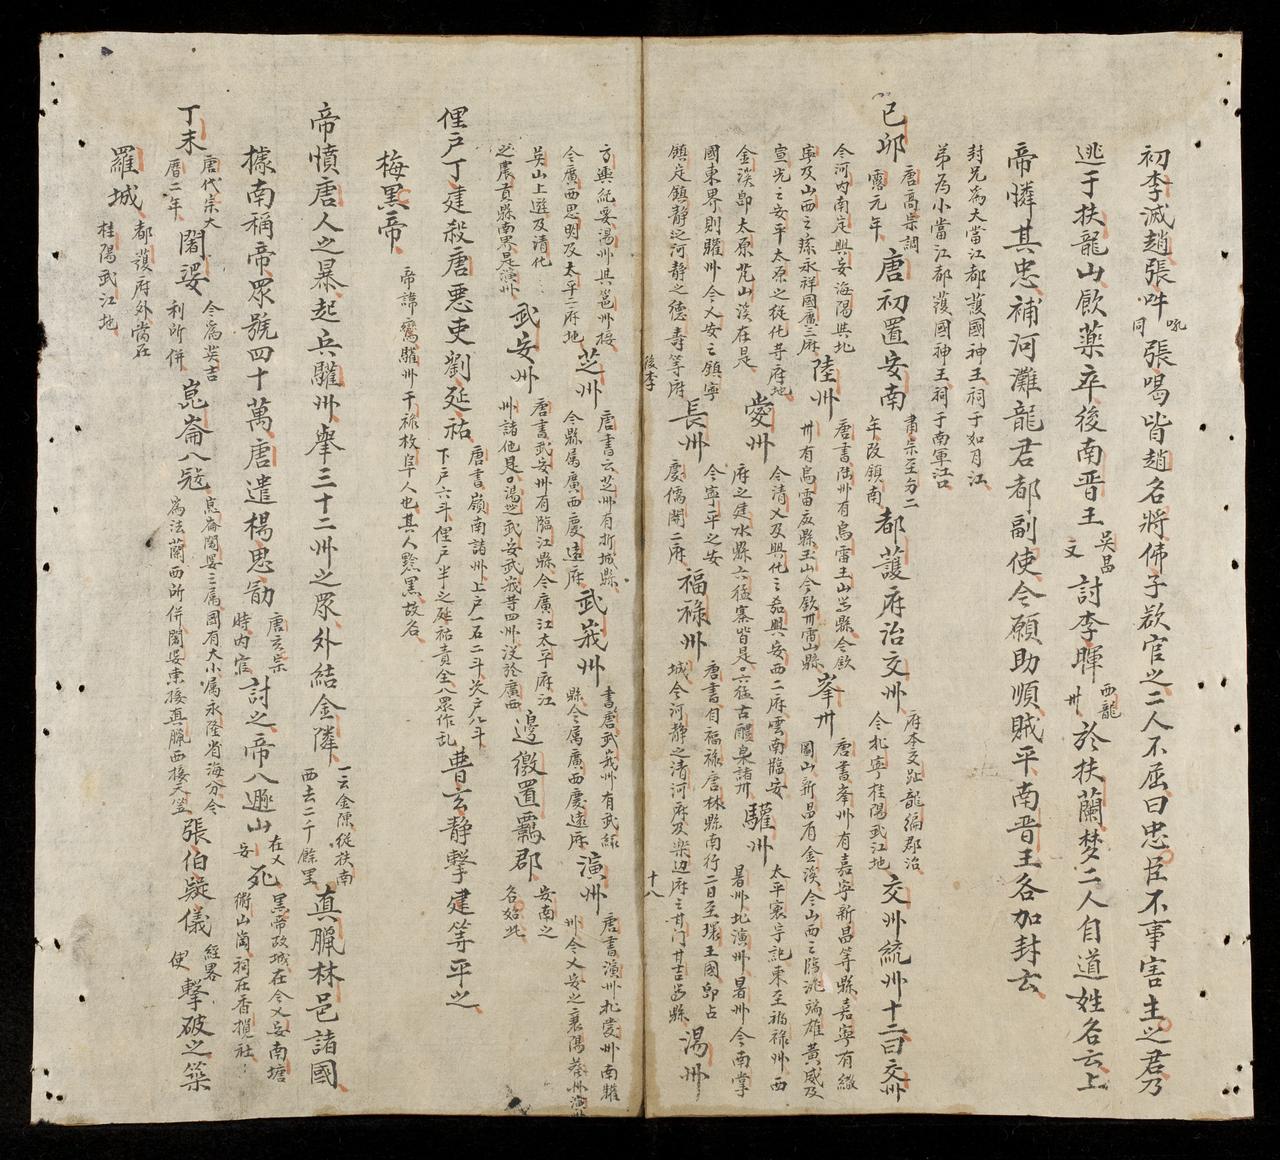 初李滅趙張吽吼同張喝皆趙名將佛子欲官之二人不屈曰忠臣不事害主之君乃
逃于扶龍山飲藥卒後南晋王吳昌文討李暉西龍卅於扶蘭梦二人自道姓名云上
帝憐其忠補河灘龍君都副使今願助順賊平南晋王各加封玄
封兄爲大當江都護國神王祠于如月江
弟爲小當江都護國神王祠于南軍江
己卯唐高宗調露元年唐初置安南肅宗至㔾二年改鎮南都護府治交州府本交趾龍編郡治今北宁桂陽武江地交州統州十二曰交州
今河内南定興安海陽與北寧及山西之永祥國廣三府陸州唐書陆州有烏雷玉山等縣今欽卅有烏雷废縣玉山今欽卅雷山縣峯卅唐書峯州有嘉寧新昌等縣嘉寧有繖圓山新昌有金溪今山西之臨洮端雄黄威及
宣光之安平太原之從化等府地金溪卽太原芃山溪在是愛州今清乂及興化之嘉興安西二府雲南臨安府之建水縣六猛寨皆是六猛古醴泉諸卅驩州太平寰宇記東至福禄州西暑州北演州暑州今南掌
國東界則驩州今乂安之鎮寧鎮定鎮静之河静之德壽等府長州今寧平之安慶儒関二府福禄州唐書有福禄唐林縣南行二日至環王國卽占城今河静之清河府及樂边府之甘门甘吉等縣湯州
後李
十八
方輿紀要湯州與邕州接今廣西思明及太平二府地芝州唐書云芝州有折城縣今縣属廣西慶遠府武峩州書唐武峩州有武緣縣今属廣西慶遠府演州唐書演州北愛州南驩州今乂安之襄陽葵州演州
吳山上遊及清化之農貢縣南界是演州武安州唐書武安州有臨江縣今廣江太平府江州諸他是湯芝武安武峩等四州没於廣西邊徼置羈郡安南之名始此
俚戸丁建殺唐惡吏劉延祐唐書嶺南諸州上戸一石二斗次戸八斗下戸六斗俚戸半之延祐責全入眾作乱曹玄静擊建等平之
梅黑帝帝諱鸞驩州干禄枚阜人也其人黔黑故名
帝憤唐人之暴起兵驩州舉三十二州之眾外結金隣一云金陳從扶南西去二千餘里真臘林邑諸國
據南稱帝眾號四十萬唐遣楊思勗唐玄宗時内官討之帝入遯山在乂安死黑帝故城在今乂安南塘衛山崗祠在香攬社
丁未唐代宗大曆二年闍婆今爲英吉利所併崑崙入寇崑崙闍婆二属國有大小属永隆省海分今爲法蘭西所併闍婆東接真臘西接天竺張伯疑儀經畧使擊破之築
羅城都護府外當在桂陽武江地